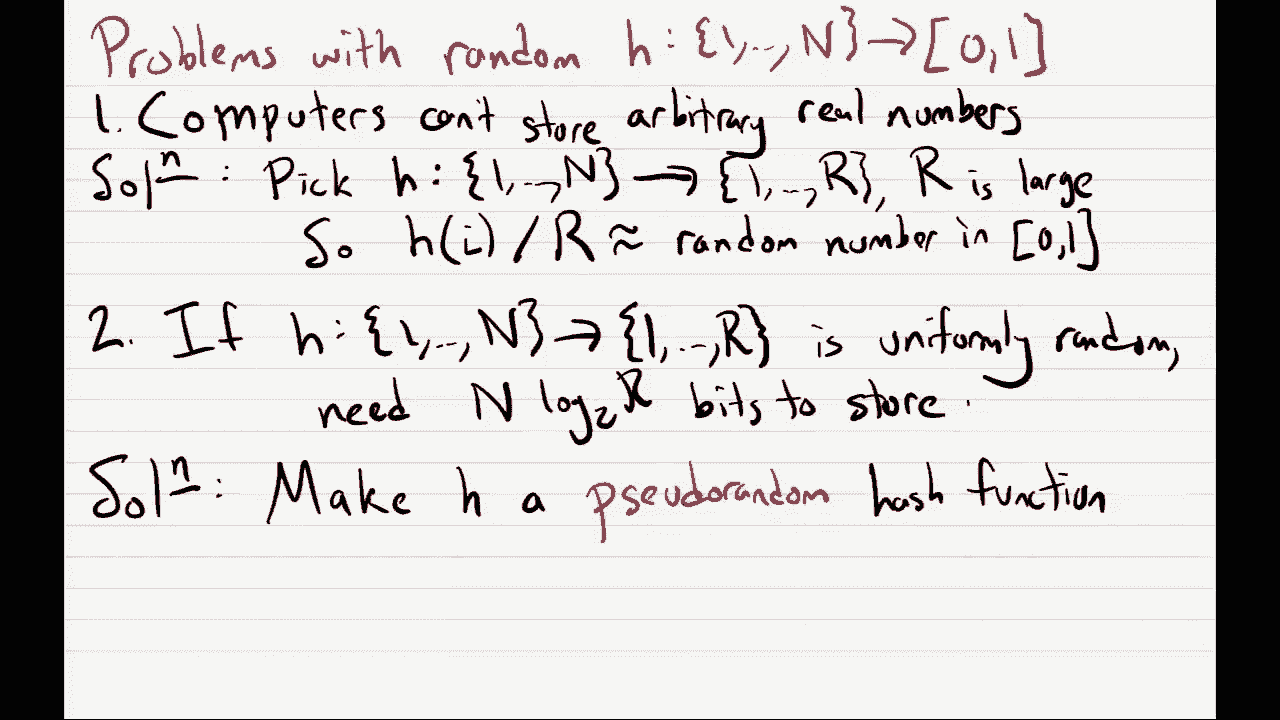 Problems with random h : {1,..,N} → [0,1]
1. Computers can't store arbitrary real numbers
Solⁿ : Pick h : {1,..,N} → {1,..,R}, R is large
So h(i) / R ≈ random number in [0,1]
2. If h : {1,..,N} → {1,..,R} is uniformly random,
need N log₂R bits to store.
Solⁿ : Make h a pseudorandom hash function